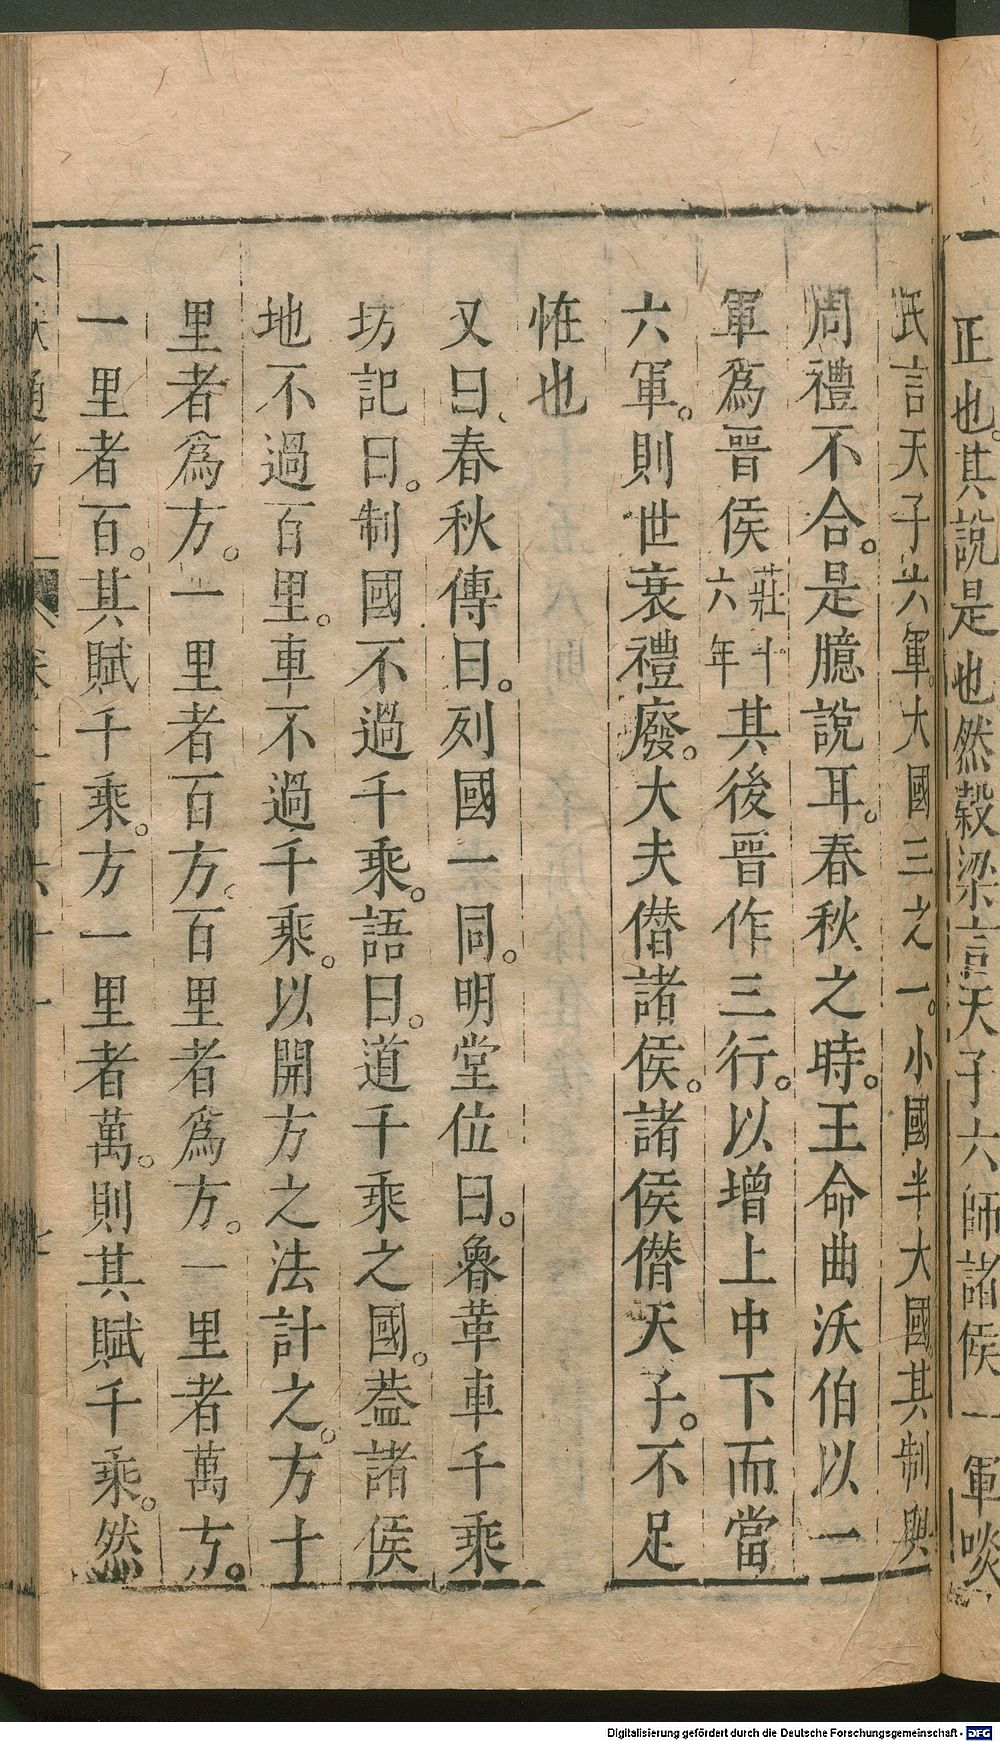 正也。其說是也然穀梁言天子六師諸侯一軍啖
氏言天子六軍。大國三之一。小國半大國其制與
周禮不合。是臆說耳。春秋之時。王命曲沃伯以一
軍爲晉侯莊十六年其後晉作三行。以增上中下而當
六軍。則世衰禮廢。大夫僭諸侯。諸侯僭天子。不足
恠也
又曰、春秋傳曰。列國一同。明堂位曰。魯革車千乘
坊記曰。制國不過千乘。語曰。道千乘之國。葢諸侯
地不過百里。車不過千乘。以開方之法計之。方十
里者爲方。一里者百方。百里者爲方。一里者萬方。
一里者百。其賦千乘。方一里者萬。則其賦千乘。然
通考
Digitalisierung gefördert durch die Deutsche Forschungsgemeinschaft - DFG